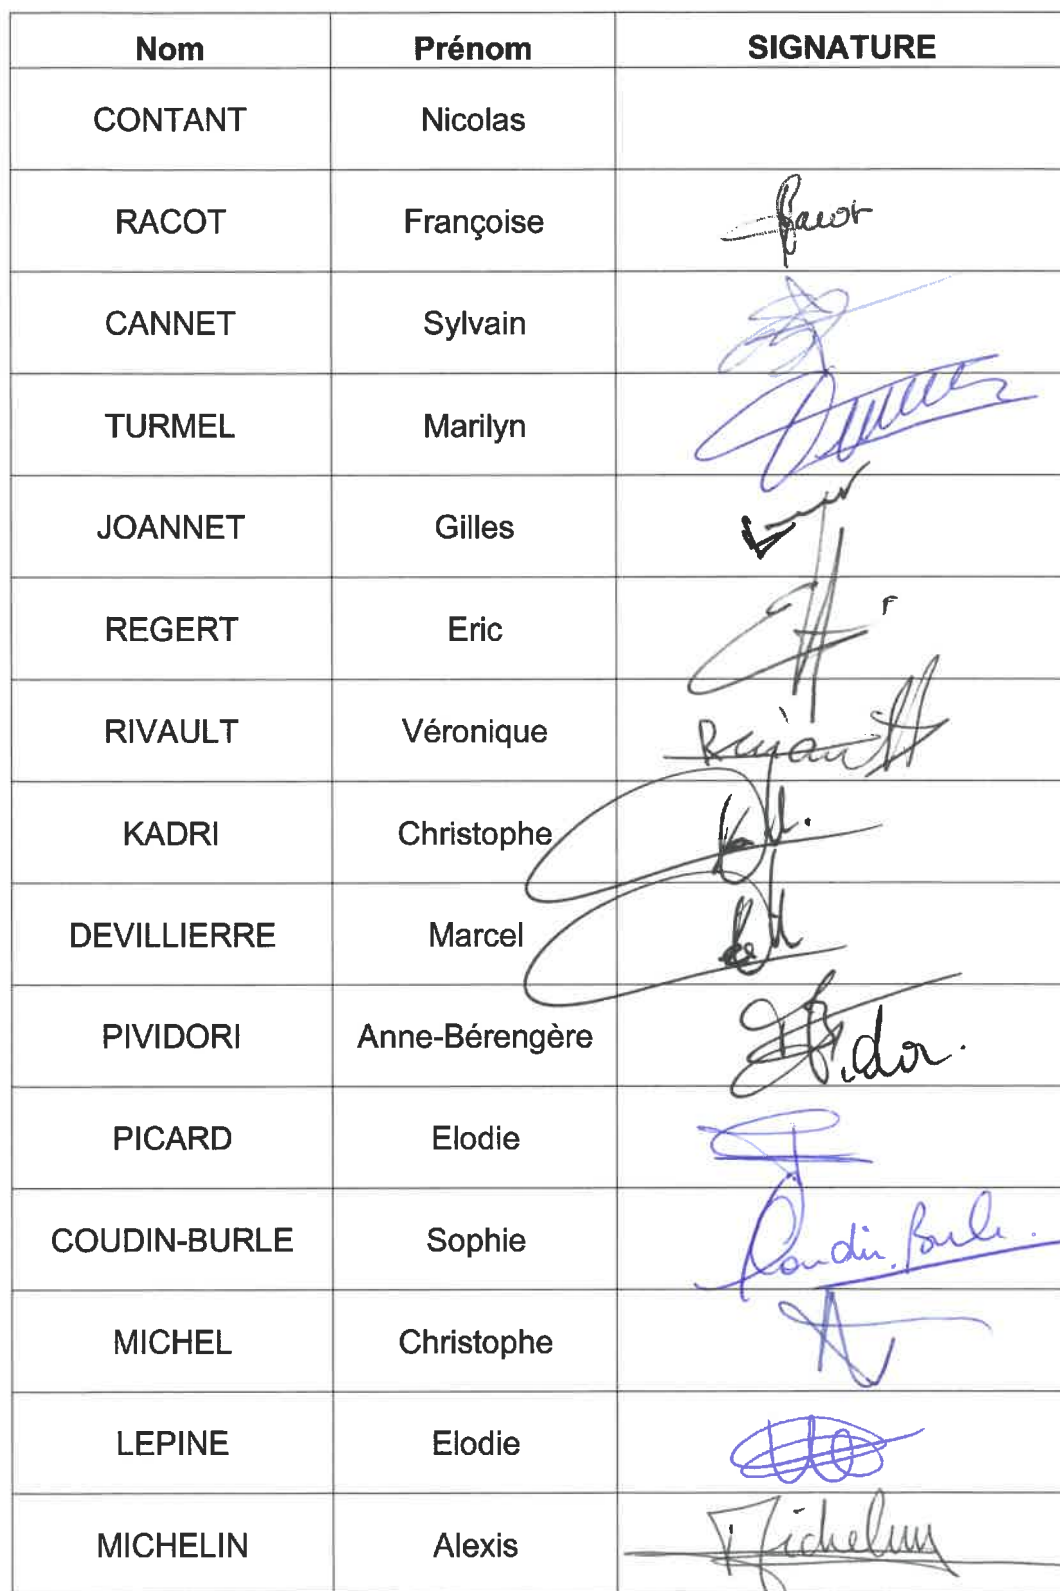 Nom Prénom SIGNATURE
CONTANT Nicolas
RACOT Françoise Racot
CANNET Sylvain
TURMEL Marilyn
JOANNET Gilles
REGERT Eric
RIVAULT Véronique
KADRI Christophe
DEVILLIERRE Marcel
PIVIDORI Anne-Bérengère
PICARD Elodie
COUDIN-BURLE Sophie Coudin.Burle.
MICHEL Christophe
LEPINE Elodie
MICHELIN Alexis Michelin